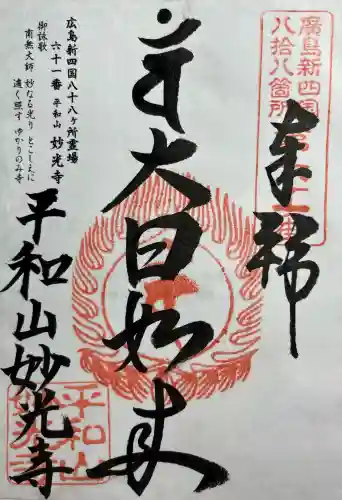 廣島新四国
八拾八箇所
奉拝
大日如来
平和山妙光寺
広島新四国八十八ヶ所霊場
六十一番 平和山 妙光寺
御詠歌
南無大師 妙なる光り とこしえに
遠く照す ゆかりのみ寺
平和山